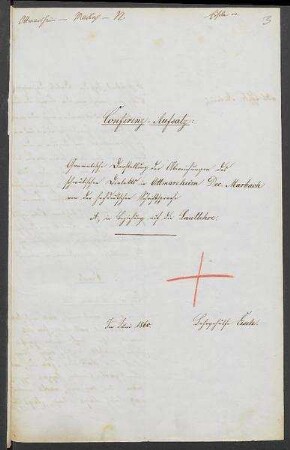 Ottmarsheim – Marbach – N.
3
Conferenz-Aufsatz:
Grammatische Darstellung der Abweichungen des
schwäbischen Dialekts in Ottmarsheim Dec. Marbach
von der hochdeutschen Schriftsprache
A, in Beziehung auf die Lautlehre.
Im Mai 1860.
Lehrgehilfe